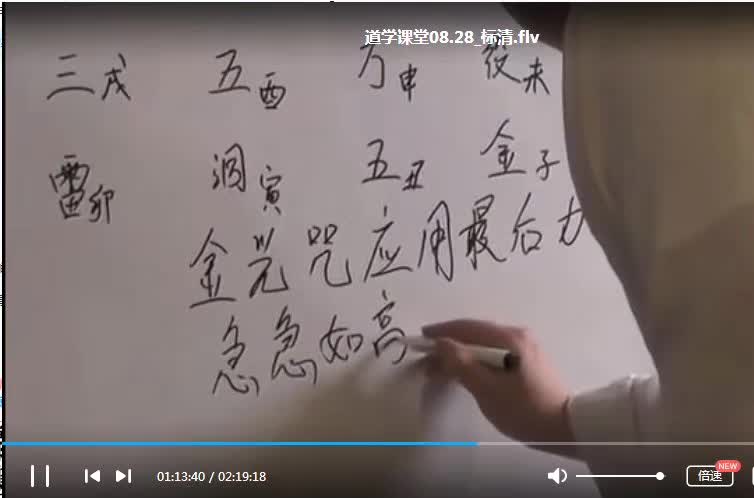 道学课堂08.28_标清.flv
三戌 五酉 万申 役未
雷卯 洞寅 五丑 金子
金光咒应用最后力
急急如高
01:13:40 / 02:19:18
倍速
NEW